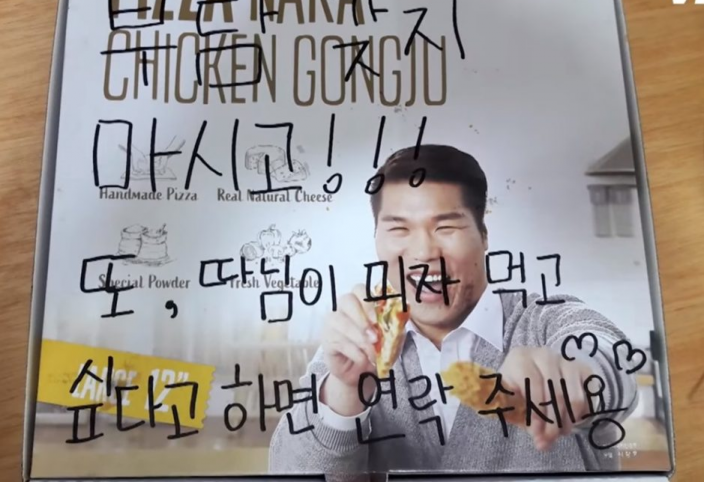 부담 갖지
CHICKEN GONGJU
마시고!!!
Handmade Pizza Real Natural Cheese
또, 따님이 피자 먹고
Special Powder Fresh Vegetable
싶다고 하면 연락 주세용
LARGE 12"